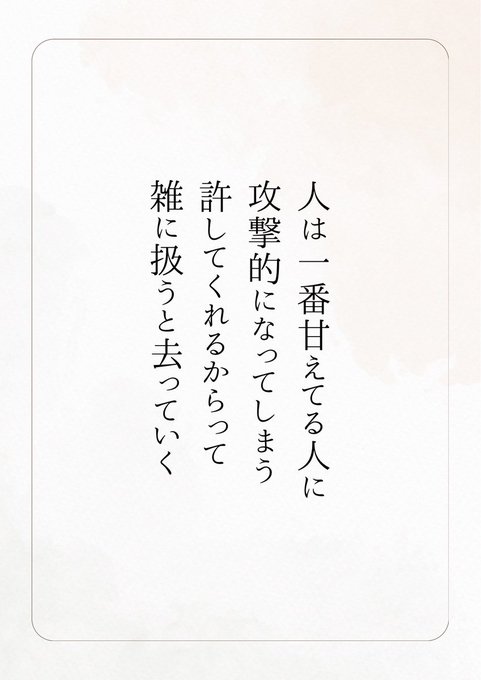 人は一番甘えてる人に
攻撃的になってしまう
許してくれるからって
雑に扱うと去っていく